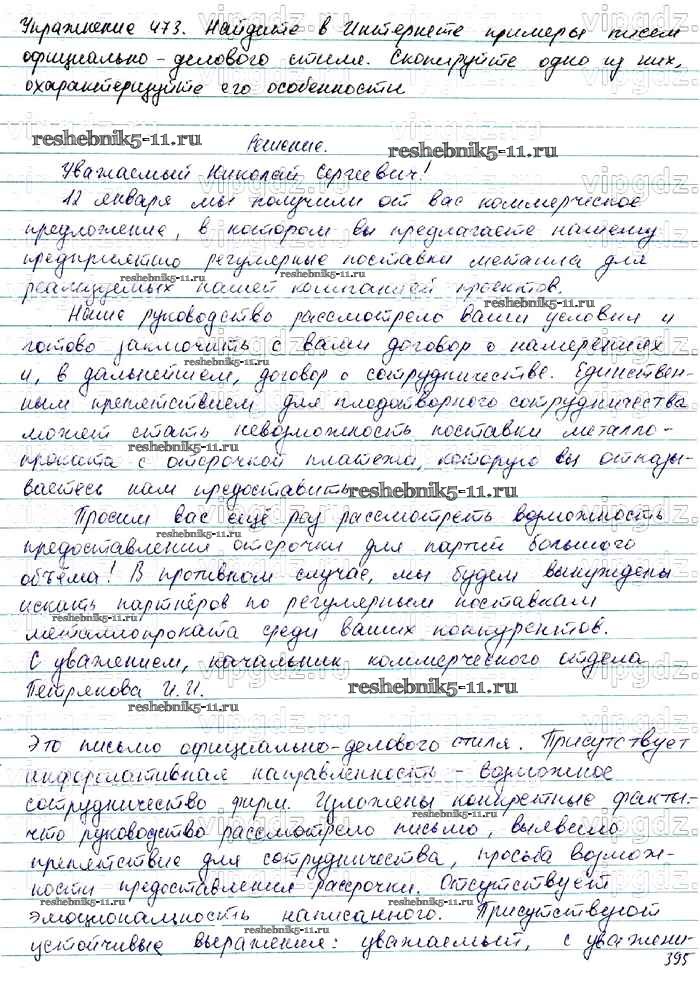 Упражнение 473. Найдите в Интернете примеры писем
официально-делового стиля. Скопируйте одно из них,
охарактеризуйте его особенности
reshebnik5-11.ru
Решение.
reshebnik5-11.ru
Уважаемый Николай Сергеевич!
12 января мы получили от вас коммерческое
предложение, в котором вы предлагаете нашему
предприятию регулярные поставки металла для
reshebnik5-11.ru
реализуемых нашей компанией проектов.
reshebnik5-11.ru
Наше руководство рассмотрело ваши условия и
готово заключить с вами договор о намерениях
reshebnik5-11.ru
и, в дальнейшем, договор о сотрудничестве. Единствен-
ным препятствием для плодотворного сотрудничества
может стать невозможность поставки металло-
reshebnik5-11.ru
проката с отсрочкой платежа, которую вы отказы-
ваетесь нам предоставить.
reshebnik5-11.ru
Просим вас ещё раз рассмотреть возможность
reshebnik5-11.ru
предоставления отсрочки для партий большого
объёма! В противном случае, мы будем вынуждены
искать партнёров по регулярным поставкам
reshebnik5-11.ru
металлопроката среди ваших конкурентов.
С уважением, начальник коммерческого отдела
Петрякова И.И.
reshebnik5-11.ru
reshebnik5-11.ru
Это письмо официально-делового стиля. Присутствует
информативная направленность - возможное
reshebnik5-11.ru
сотрудничество фирм. Изложены конкретные факты:
что руководство рассмотрело письмо, выявило
reshebnik5-11.ru
препятствие для сотрудничества, просьба возмож-
ности предоставления рассрочки. Отсутствует
reshebnik5-11.ru
эмоциональность написанного. Присутствуют
reshebnik5-11.ru
устойчивые выражения: уважаемый, с уважени-
395